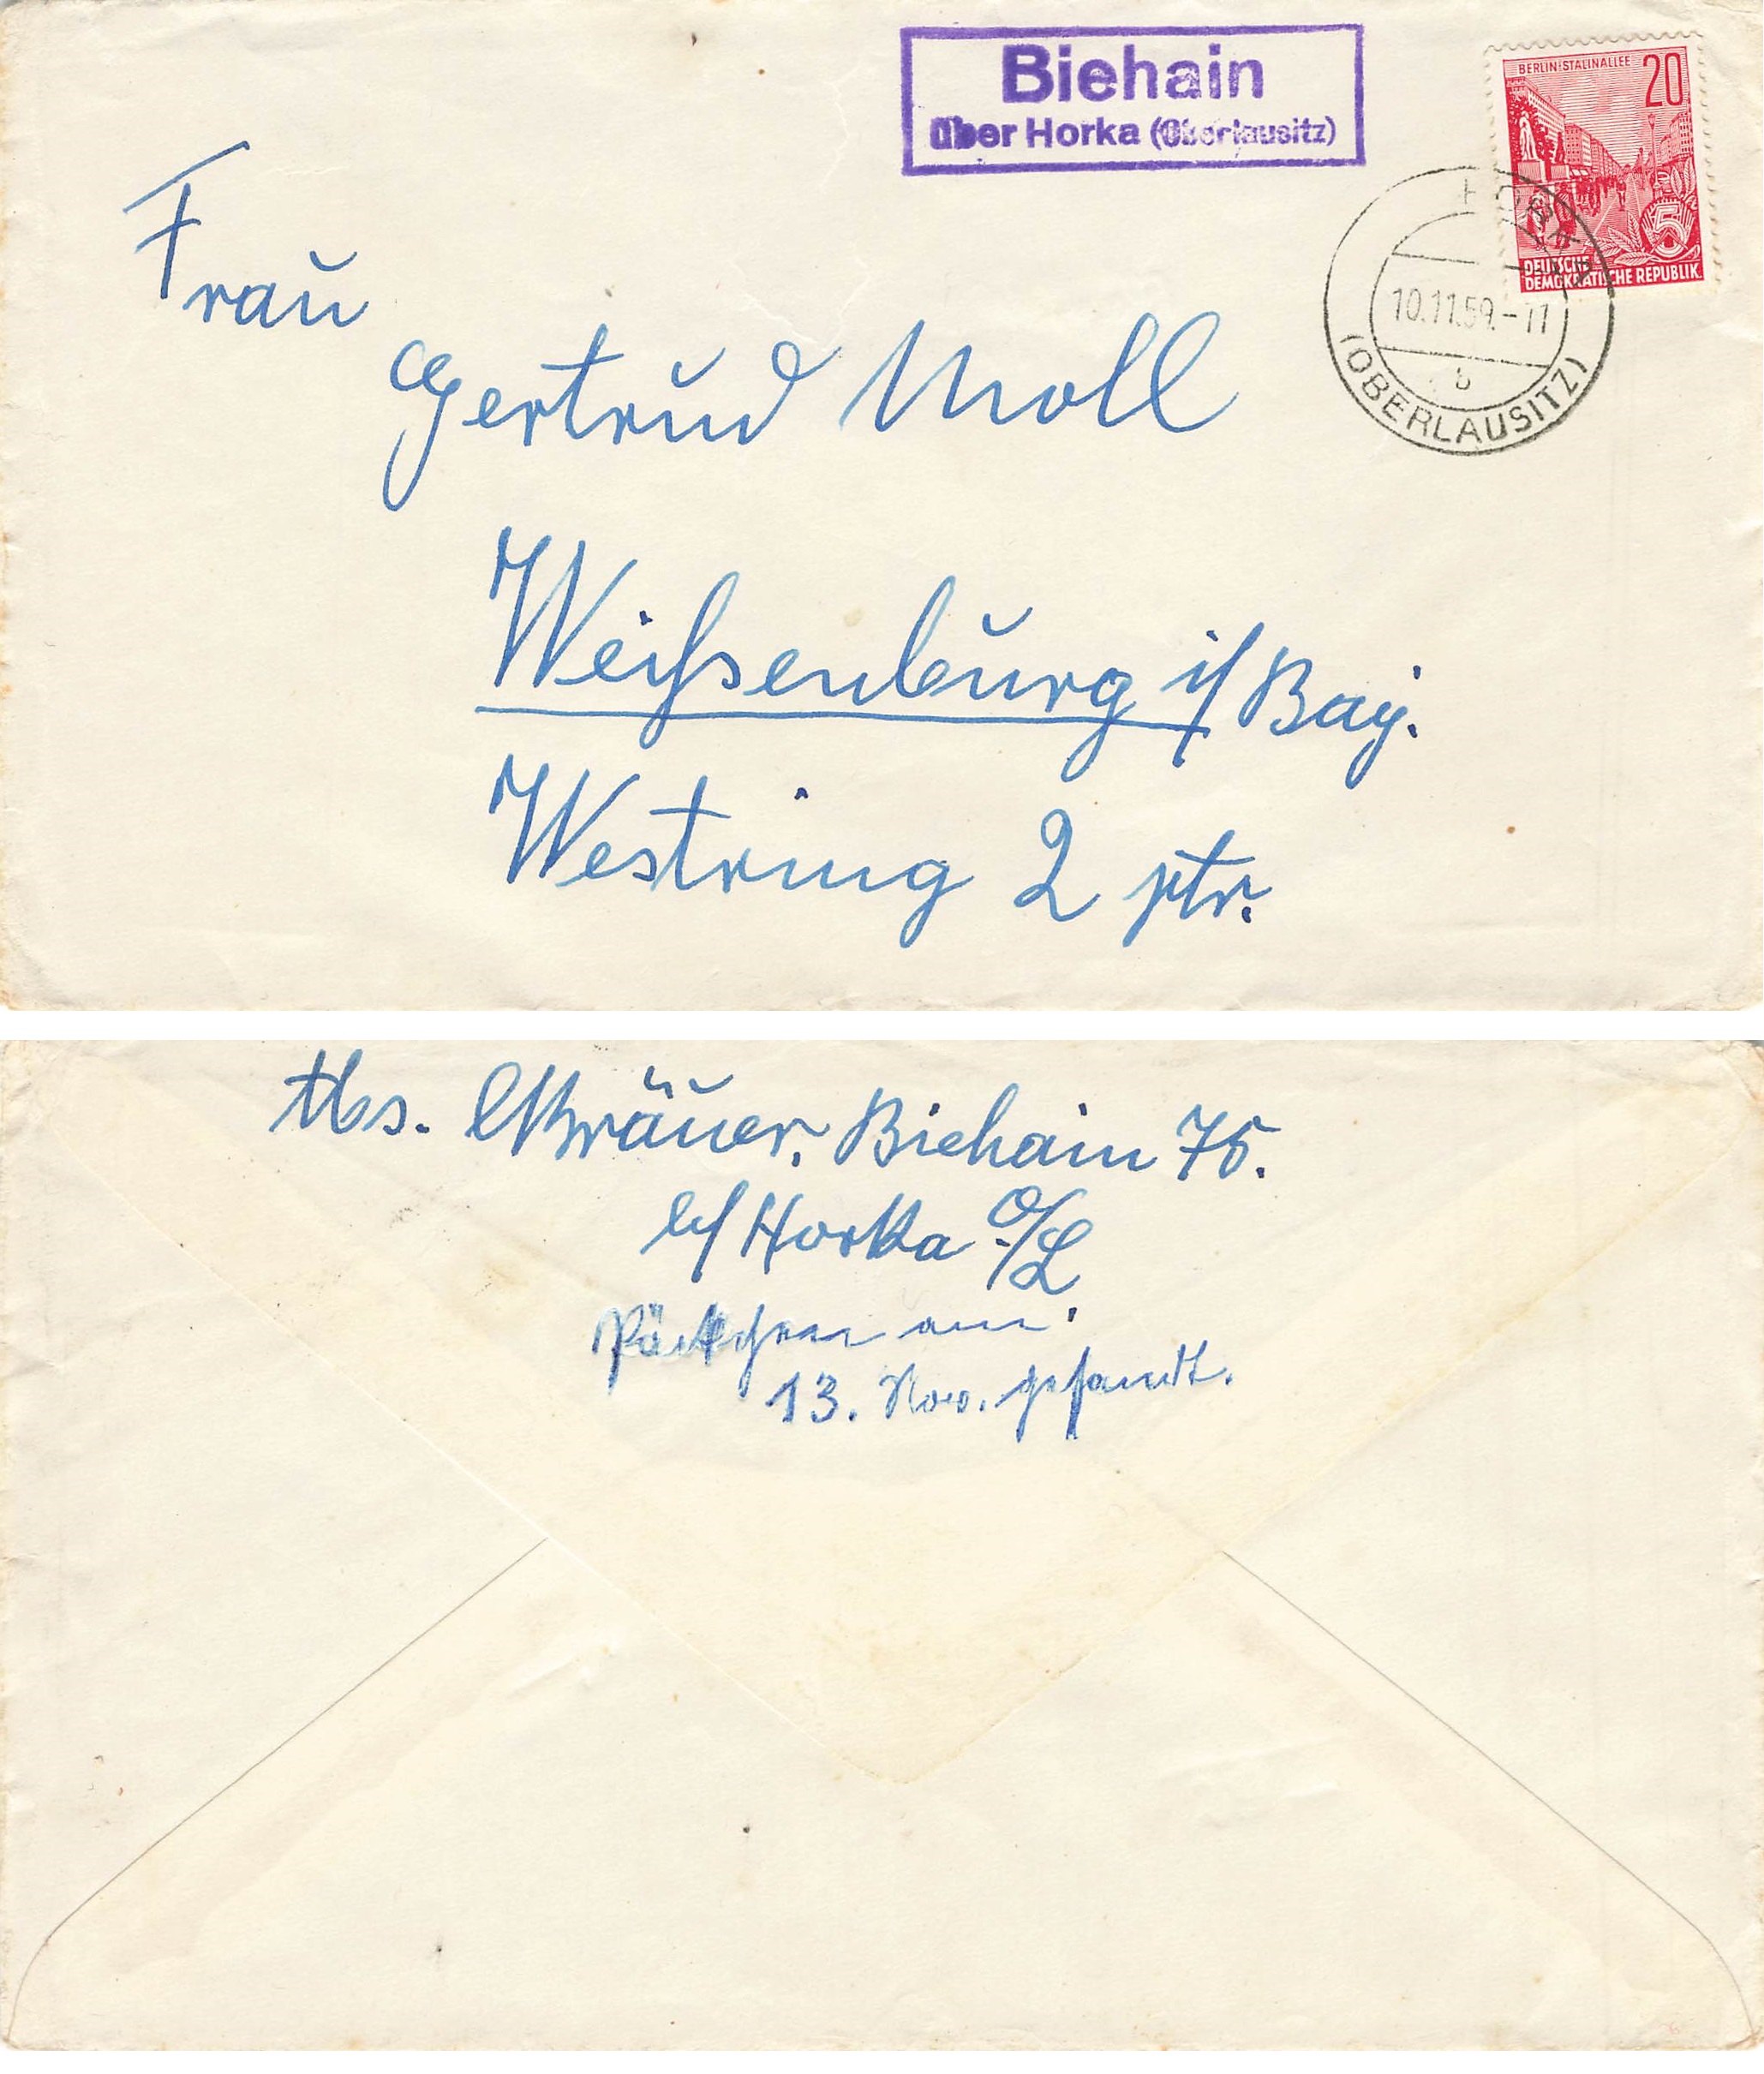 Biehain
über Horka (Oberlausitz)
BERLIN-STALINALLEE 20
5
DEUTSCHE
DEMOKRATISCHE REPUBLIK
HORKA
10.11.59.-11
b
(OBERLAUSITZ)
Frau
Gertrud Moll
Weißenburg i/Bay.
Westring 2 ptr.
Abs. Bräuer, Biehain 75.
b/Horka O/L.
Päckchen am
13. Nov. gesandt.